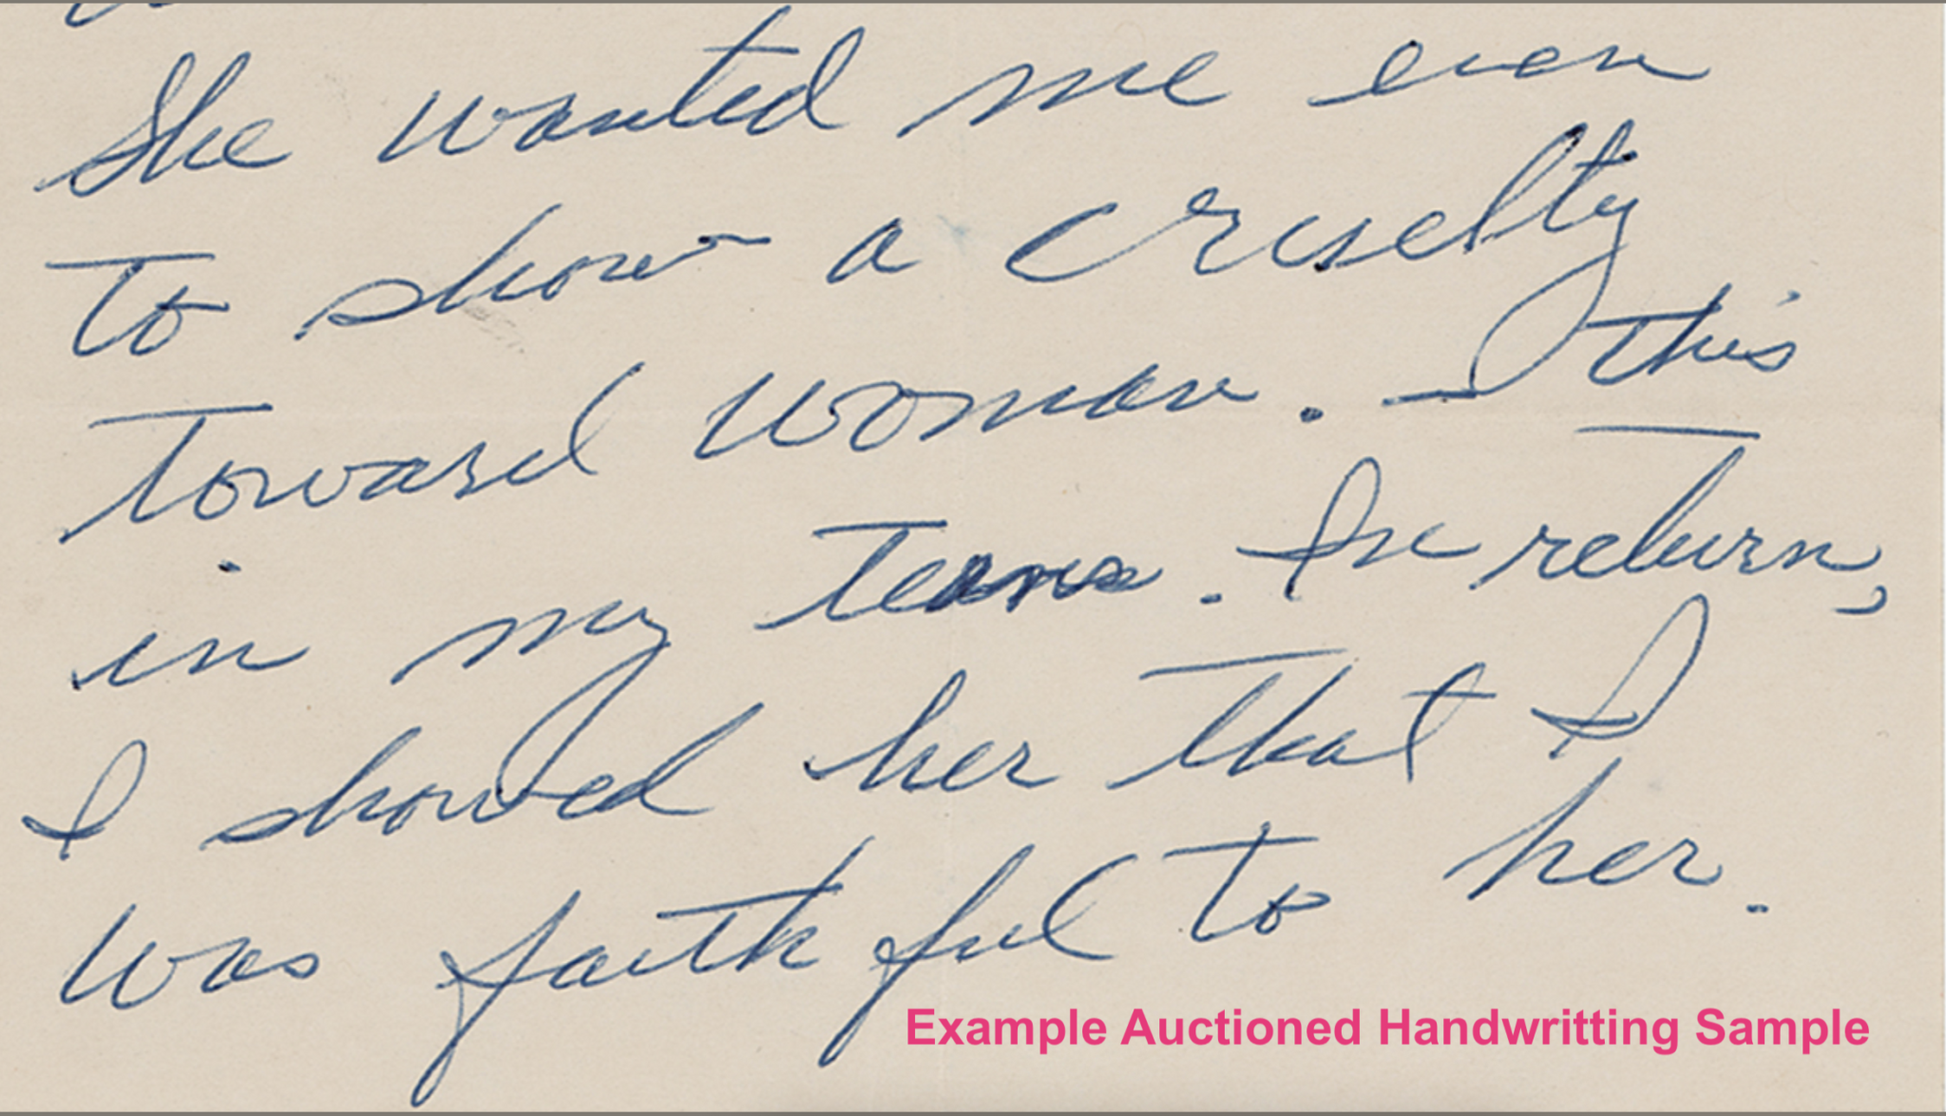 She wanted me even
to show a cruelty
toward woman. This
in my teans. In return,
I showed her that I
was faithful to her.
Example Auctioned Handwritting Sample